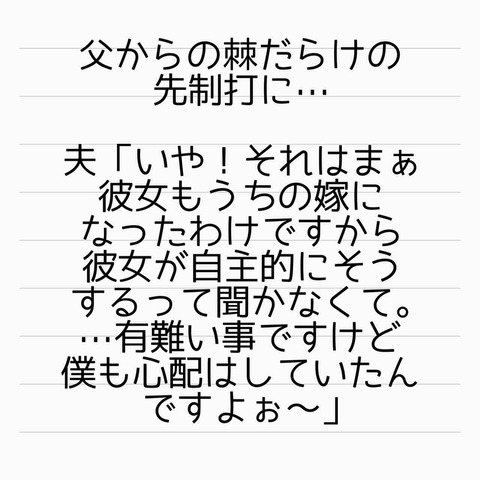 父からの棘だらけの
先制打に…
夫「いや！それはまぁ
彼女もうちの嫁に
なったわけですから
彼女が自主的にそう
するって聞かなくて。
…有難い事ですけど
僕も心配はしていたん
ですよぉ～」